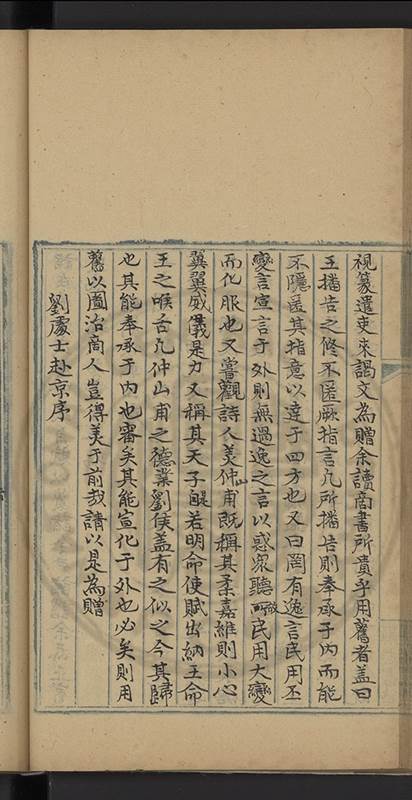 視篆遣吏来謁文為贈余讀商書所貴乎用舊者盖曰
王播告之修不匿厥指言凡所播告則奉承于内而能
不隱匿其指意以達于四方也又曰罔有逸言民用丕
變言宣言于外則無過逸之言以惑衆聽故民用大變
而化服也又嘗觀詩人美仲山甫既稱其柔嘉維則小心
翼翼威儀是力又稱其天子是若明命使賦出納王命
王之喉舌凡仲山甫之德業劉侯盖有之似之今其歸
也其能奉承于内也審矣其能宣化于外也必矣則用
舊以圖治商人豈得美于前哉請以是為贈
劉處士赴京序